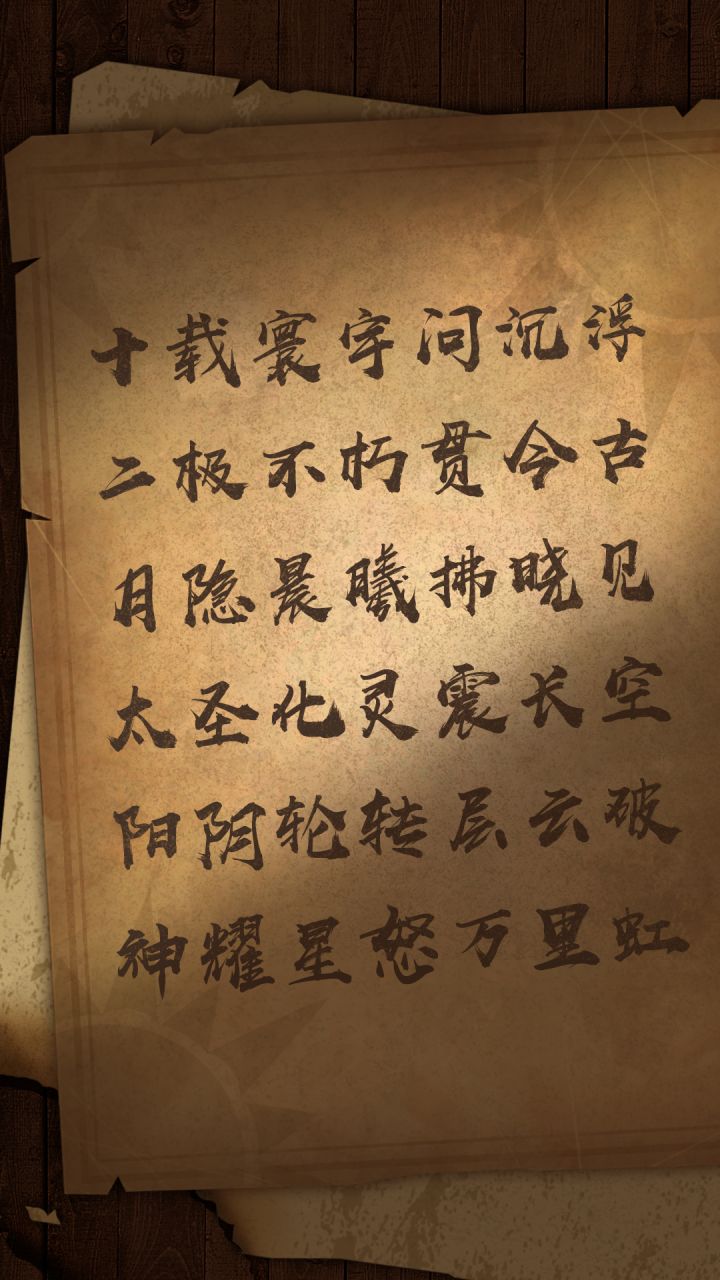 十载寰宇问沉浮
二极不朽贯今古
月隐晨曦拂晓见
太圣化灵震长空
阳阴轮转层云破
神耀星怒万里虹